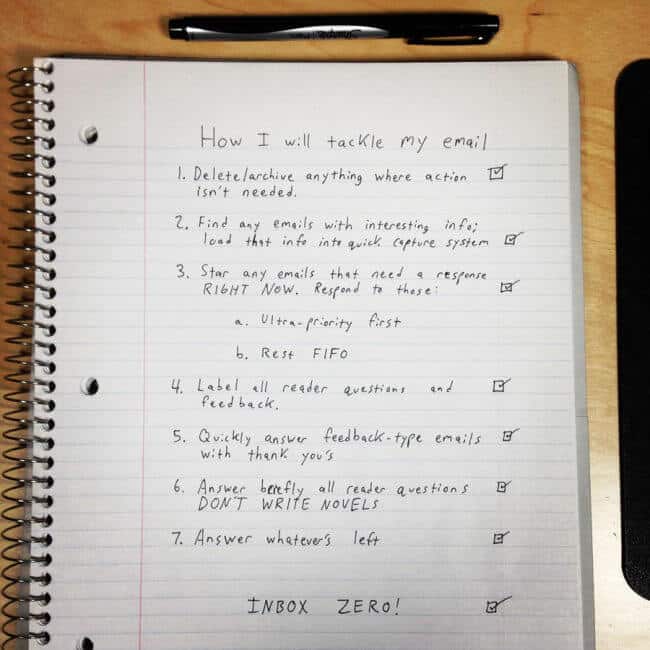 How I will tackle my email
1. Delete/archive anything where action
isn't needed.
2. Find any emails with interesting info;
load that info into quick capture system
3. Star any emails that need a response
RIGHT NOW. Respond to those:
a. Ultra-priority first
b. Rest FIFO
4. Label all reader questions and
feedback.
5. Quickly answer feedback-type emails
with thank you's
6. Answer briefly all reader questions
DON'T WRITE NOVELS
7. Answer whatever's left
INBOX ZERO!